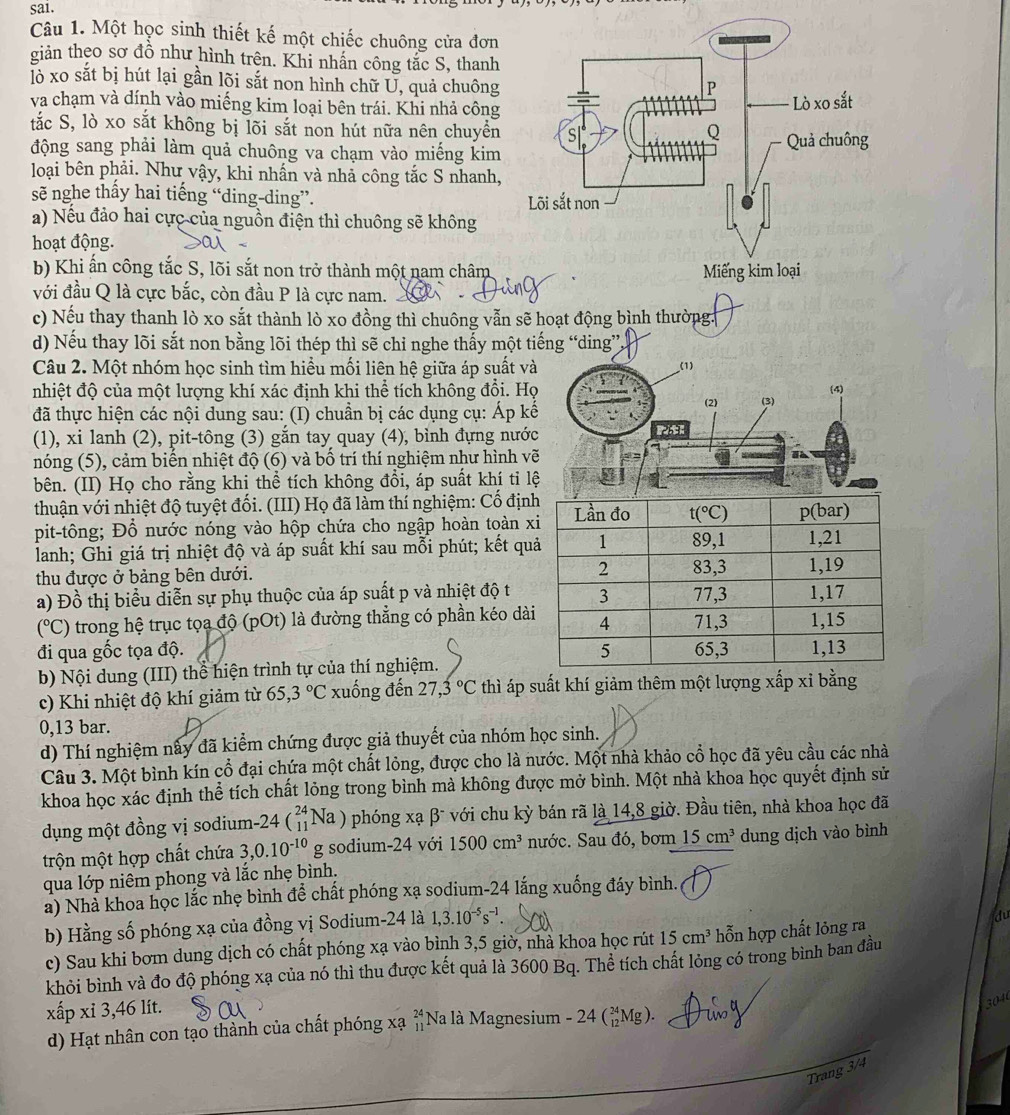 sai.
Câu 1. Một học sinh thiết kế một chiếc chuông cửa đơn
giản theo sơ đồ như hình trên. Khi nhấn công tắc S, thanh
lò xo sắt bị hút lại gần lõi sắt non hình chữ U, quả chuông
va chạm và dính vào miếng kim loại bên trái. Khi nhả công
tắc S, lò xo sắt không bị lõi sắt non hút nữa nên chuyển
động sang phải làm quả chuông va chạm vào miếng kim
loại bên phải. Như vậy, khi nhấn và nhả công tắc S nhanh,
sẽ nghe thấy hai tiếng “ding-ding”.
P
Lò xo sắt
S
Q
Quả chuông
Lõi sắt non
Miếng kim loại
a) Nếu đảo hai cực của nguồn điện thì chuông sẽ không
hoạt động. Sai
b) Khi ấn công tắc S, lõi sắt non trở thành một nam châm
với đầu Q là cực bắc, còn đầu P là cực nam. Sai - Đúng
c) Nếu thay thanh lò xo sắt thành lò xo đồng thì chuông vẫn sẽ hoạt động bình thường. Đ
d) Nếu thay lõi sắt non bằng lõi thép thì sẽ chỉ nghe thấy một tiếng “ding”. Đ
Câu 2. Một nhóm học sinh tìm hiểu mối liên hệ giữa áp suất và
nhiệt độ của một lượng khí xác định khi thể tích không đổi. Họ
đã thực hiện các nội dung sau: (I) chuẩn bị các dụng cụ: Áp kế
(1), xi lanh (2), pit-tông (3) gắn tay quay (4), bình đựng nước
nóng (5), cảm biến nhiệt độ (6) và bố trí thí nghiệm như hình vẽ
bên. (II) Họ cho rằng khi thể tích không đổi, áp suất khí tỉ lệ
thuận với nhiệt độ tuyệt đối. (III) Họ đã làm thí nghiệm: Cố định
pit-tông; Đổ nước nóng vào hộp chứa cho ngập hoàn toàn xi
lanh; Ghi giá trị nhiệt độ và áp suất khí sau mỗi phút; kết quả
thu được ở bảng bên dưới.
(1)
(2) (3) (4)
Lần đo t(°C) p(bar)
1 89,1 1,21
2 83,3 1,19
3 77,3 1,17
4 71,3 1,15
5 65,3 1,13
a) Đồ thị biểu diễn sự phụ thuộc của áp suất p và nhiệt độ t
(°C) trong hệ trục tọa độ (pOt) là đường thẳng có phần kéo dài
đi qua gốc tọa độ. Đ
b) Nội dung (III) thể hiện trình tự của thí nghiệm. S
c) Khi nhiệt độ khí giảm từ 65,3 °C xuống đến 27,3 °C thì áp suất khí giảm thêm một lượng xấp xỉ bằng
0,13 bar. Đ
d) Thí nghiệm này đã kiểm chứng được giả thuyết của nhóm học sinh. Đ
Câu 3. Một bình kín cổ đại chứa một chất lỏng, được cho là nước. Một nhà khảo cổ học đã yêu cầu các nhà
khoa học xác định thể tích chất lỏng trong bình mà không được mở bình. Một nhà khoa học quyết định sử
dụng một đồng vị sodium-24 (²⁴₁₁Na ) phóng xạ β⁻ với chu kỳ bán rã là 14,8 giờ. Đầu tiên, nhà khoa học đã
trộn một hợp chất chứa 3,0.10⁻¹⁰ g sodium-24 với 1500 cm³ nước. Sau đó, bơm 15 cm³ dung dịch vào bình
qua lớp niêm phong và lắc nhẹ bình.
a) Nhà khoa học lắc nhẹ bình để chất phóng xạ sodium-24 lắng xuống đáy bình. Đ
b) Hằng số phóng xạ của đồng vị Sodium-24 là 1,3.10⁻⁵s⁻¹. Sai
c) Sau khi bơm dung dịch có chất phóng xạ vào bình 3,5 giờ, nhà khoa học rút 15 cm³ hỗn hợp chất lỏng ra
khỏi bình và đo độ phóng xạ của nó thì thu được kết quả là 3600 Bq. Thể tích chất lỏng có trong bình ban đầu
xấp xỉ 3,46 lít. Sai
d) Hạt nhân con tạo thành của chất phóng xạ ²⁴₁₁Na là Magnesium - 24 (²⁴₁₂Mg ). Đúng
Trang 3/4